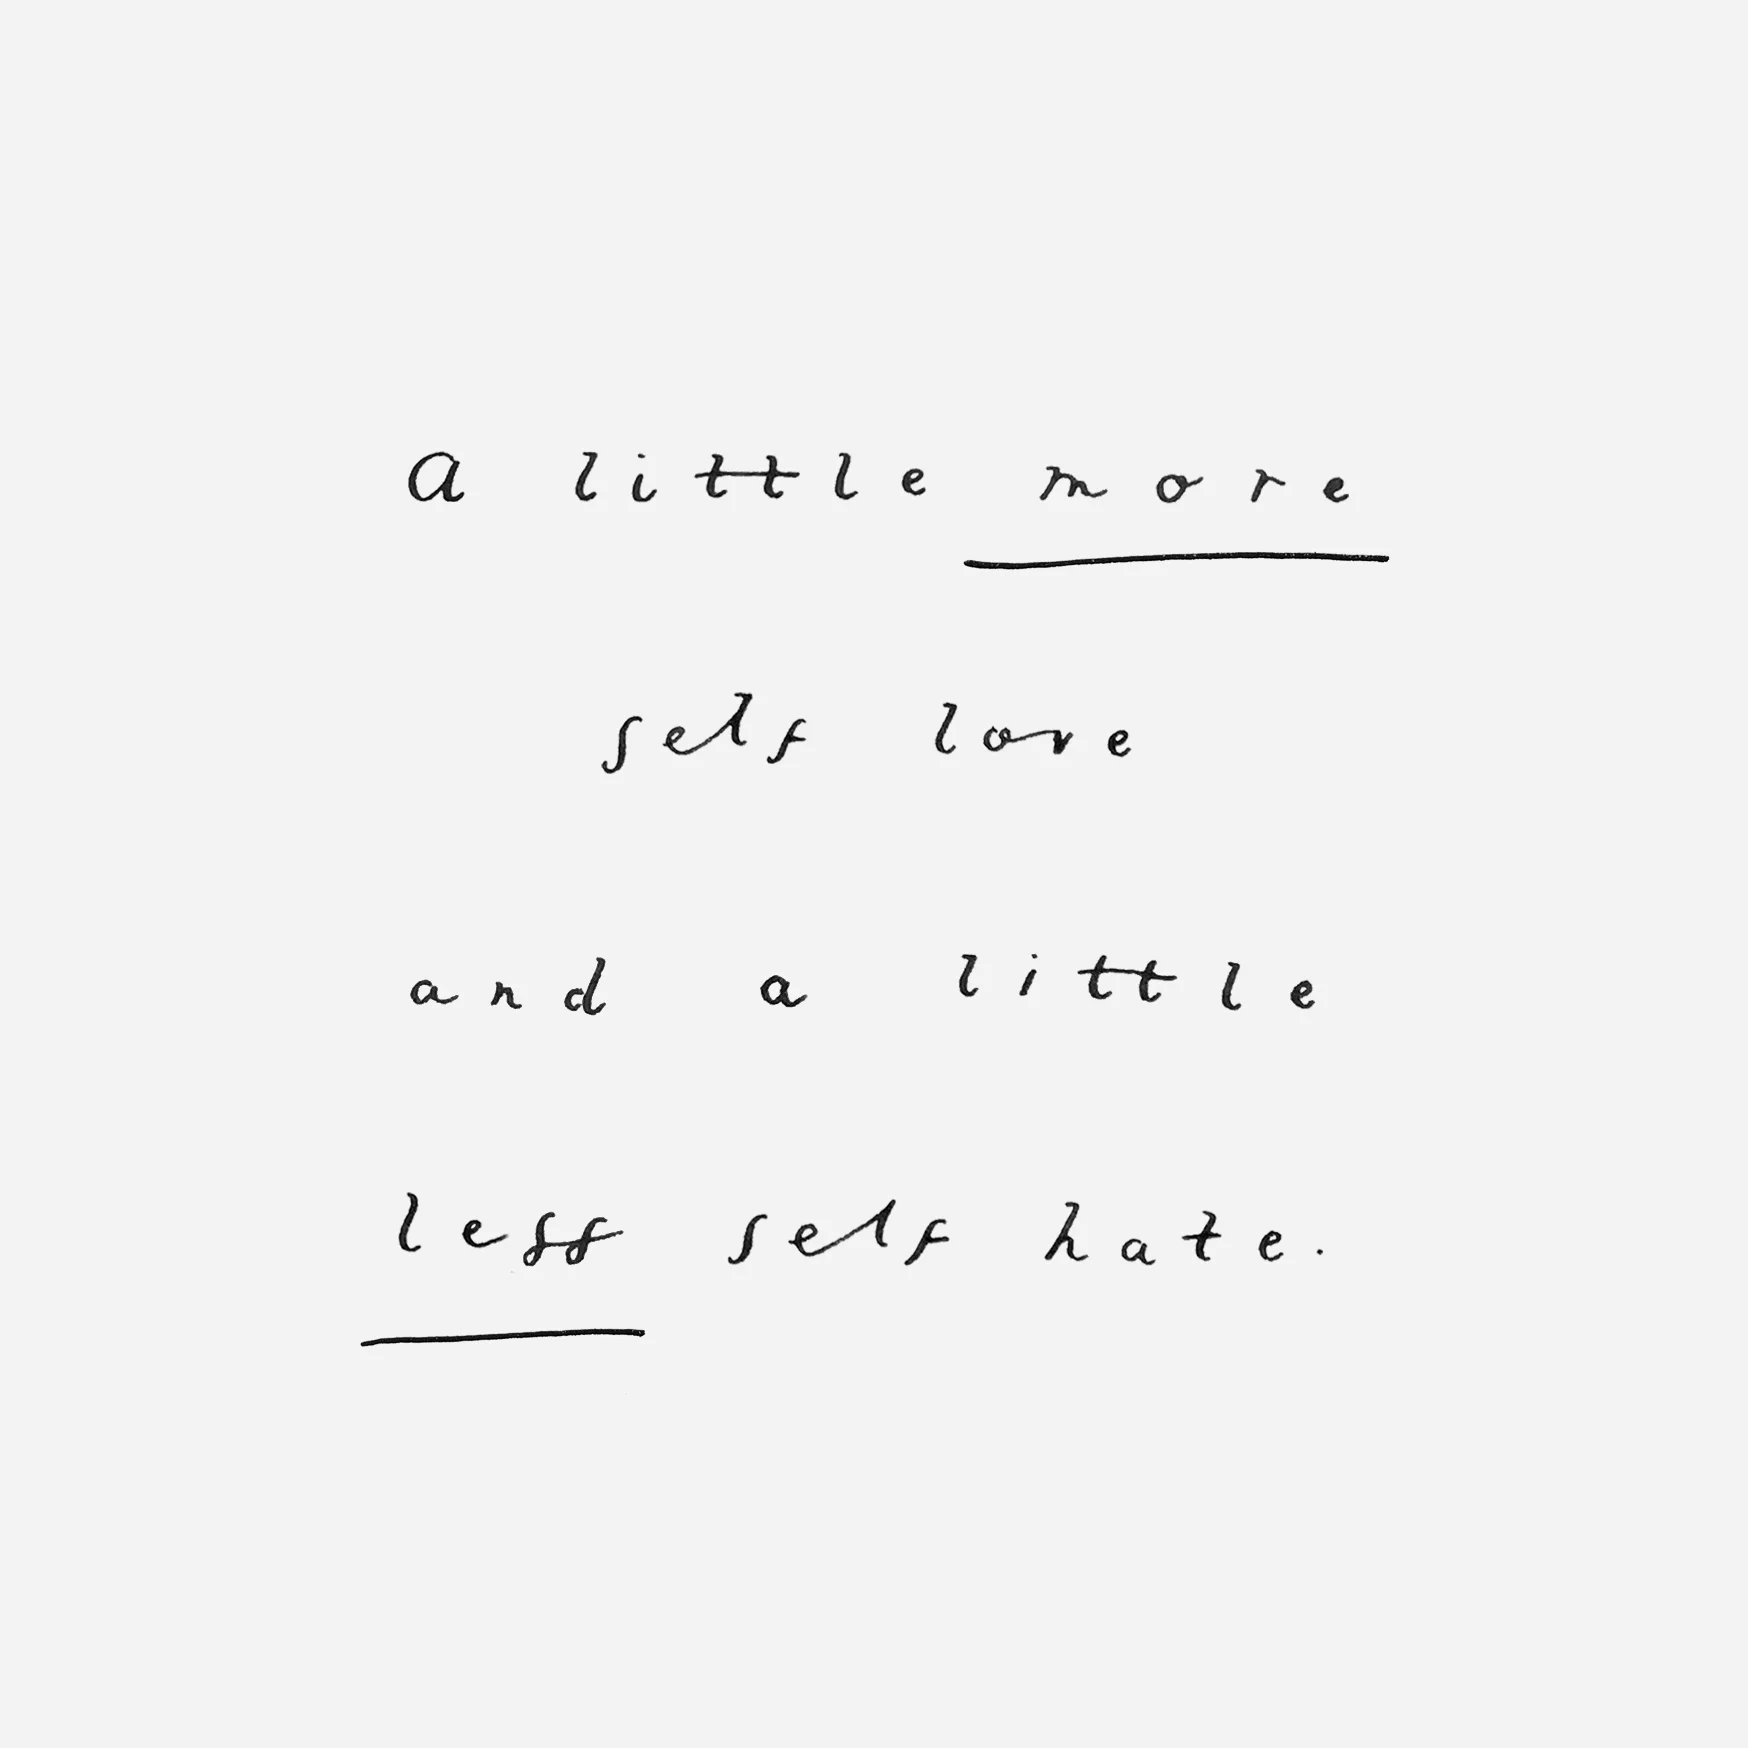 A little more
self love
and a little
less self hate.